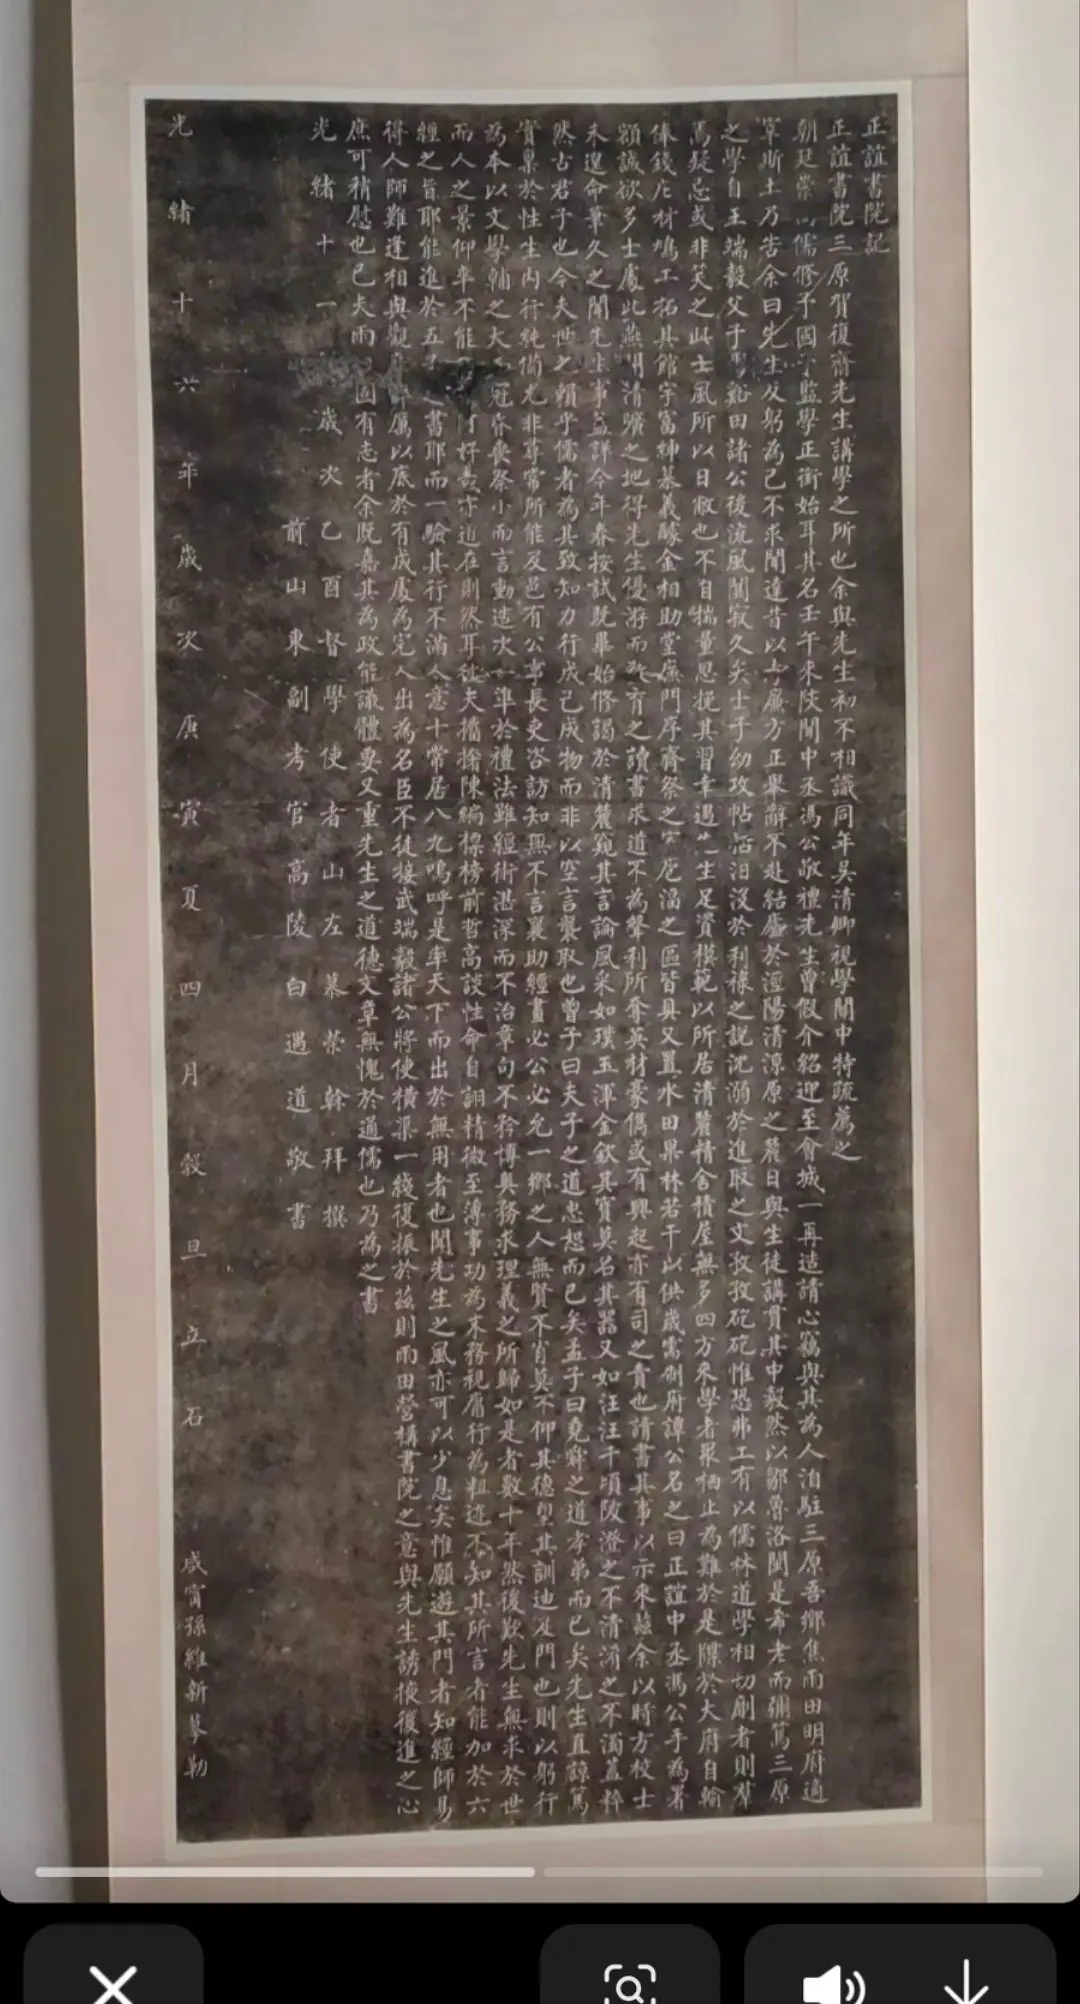 正誼書院記
正誼書院三原賀復齋先生講學之所也余與先生初不相識同年吳清卿視學關中特疏薦之
朝廷崇 儒修予國子監學正銜始耳其名壬午來陝關中丞馮公敬禮先生曾假介紹迎至會城一再造請心竊與其為人洎駐三原吾鄉焦雨田明府適
宰斯土乃告余曰先生反躬為己不求聞達昔以孝廉方正舉辭不赴結廬於涇陽清涼原之麓日與生徒講貫其中毅然以鄒魯洛閩是希老而彌篤三原
之學自王端毅父子 谿田諸公後流風闃寂久矣士子幼攻帖括汩沒於利祿之說沈溺於進取之文孜孜矻矻惟恐弗工有以儒林道學相切劘者則羣
焉疑忌或非笑之此士風所以日敝也不自揣量思挽其習幸遇先生足資模範以所居清麓精舍積屋無多四方來學者眾栖止為難於是牒於大府自輸
俸錢庀材鳩工拓其館宇富紳慕義醵金相助堂廡門序齋祭之室庖湢之區皆具又置水田果林若干以供歲需制府譚公名之曰正誼中丞馮公手為署
額誠欲多士處此燕閒清曠之地得先生優游而教育之讀書求道不為聲利所奪英材豪儁或有興起亦有司之責也請書其事以示來茲余以時方校士
未遑命筆久之聞先生事益詳今年春按試既畢始修謁於清麓窺其言論風采如璞玉渾金欽其寶莫名其器又如汪汪千頃陂澄之不清淆之不濁蓋粹
然古君子也今夫世之賴乎儒者為其致知力行成己成物而非以空言襲取也曾子曰夫子之道忠恕而已矣孟子曰堯舜之道孝弟而已矣先生直諒篤
實稟於性生內行純備尤非尋常所能及邑有公事長吏咨訪知無不言襄助經畫必公必允一鄉之人無賢不肖莫不仰其德望其訓迪及門也則以躬行
為本以文學輔之大 冠昏喪祭小而言動造次一準於禮法雖經術湛深而不治章句不矜博奧務求理義之所歸如是者數十年然後歎先生無求於世
而人之景仰率不能 好 亦道在則然耳彼夫播揄陳編標榜前哲高談性命自詡精微至薄事功為末務視庸行為粗迹不知其所言者能加於六
經之旨耶能進於五 之書耶而一驗其行不滿人意十常居八九嗚呼是率天下而出於無用者也聞先生之風亦可以少息矣惟願遊其門者知經師易
得人師難逢相與觀 厲以底於有成處為完人出為名臣不徒接武端毅諸公將使橫渠一綫復振於茲則雨田營構書院之意與先生誘掖後進之心
庶可稍慰也已夫雨 固有志者余既嘉其為政能識體要又重先生之道德文章無愧於通儒也乃為之書
光緒十一 歲次乙酉督學使者山左慕榮榦拜撰
前山東副考官高陵白遇道敬書
光緒十六年歲次庚寅夏四月穀旦立石 咸甯孫維新摹勒